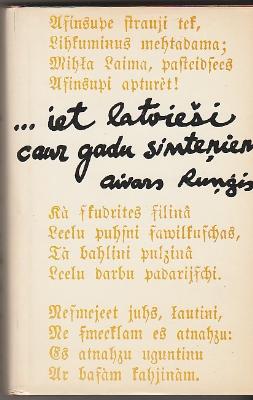 Asinsupe strauji tek,
Lihkuminus mehtadama;
Mihļa Laima, pasteidsees
Asinsupi apturèt!
... iet latvieši
caur gadu simteņiem
Aivars Ruņģis
Kà skudrites silinâ
Leelu puhsni sawilkuschas,
Tà bahlini pulzinâ
Leelu darbu padarijschi.
Nesmejeet juhs, ļautini,
Ne smeeklam es atnahzu:
Es atnahzu uguntinu
Ar basàm kahjinàm.